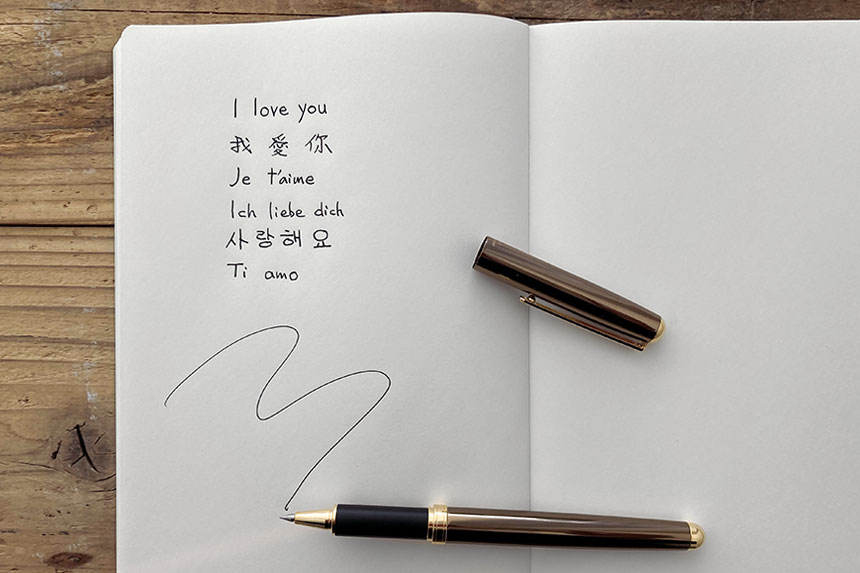 I love you
我愛你
Je t'aime
Ich liebe dich
사랑해요
Ti amo